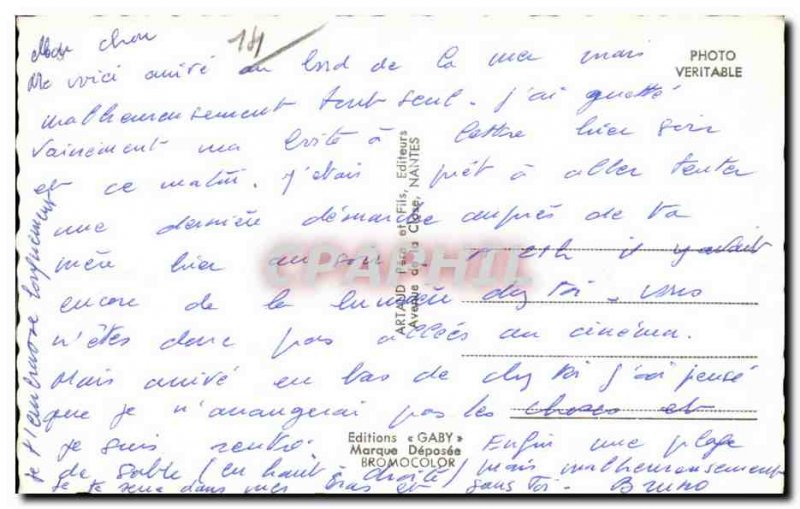 Mon chou
181
Me voici arrivé au bord de la mer mais
malheureusement tout seul. J'ai guetté
vainement ma boîte à lettre hier soir
et ce matin. J'étais prêt à aller tenter
une dernière démarche auprès de ta
mère hier au soir. il y avait
encore de la lumière chez toi. vous
n'êtes donc pas allées au cinéma.
Mais arrivé en bas de chez toi j'ai pensé
que je n'arrangerai pas les choses et
je suis rentré. Enfin une plage
de sable (en haut à droite) mais malheureusement
sans toi. Bruno
je te serre dans mes bras et
je t'embrasse longuement
PHOTO
VERITABLE
ARTAUD Père et Fils, Editeurs
Avenue de la Close, NANTES
Editions « GABY »
Marque Déposée
BROMOCOLOR
CPARPHIL